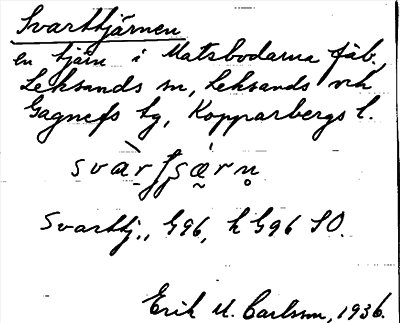 Svarttjärnen
en tjärn i Matsbodarna fäb.,
Leksands sn, Leksands och
Gagnefs tg, Kopparbergs l.
Svarttj., G96, h G96 SO.
Erik M. Carlsson, 1936.